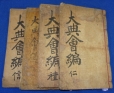 大典會編 仁
大典會編 禮
大典會編 信